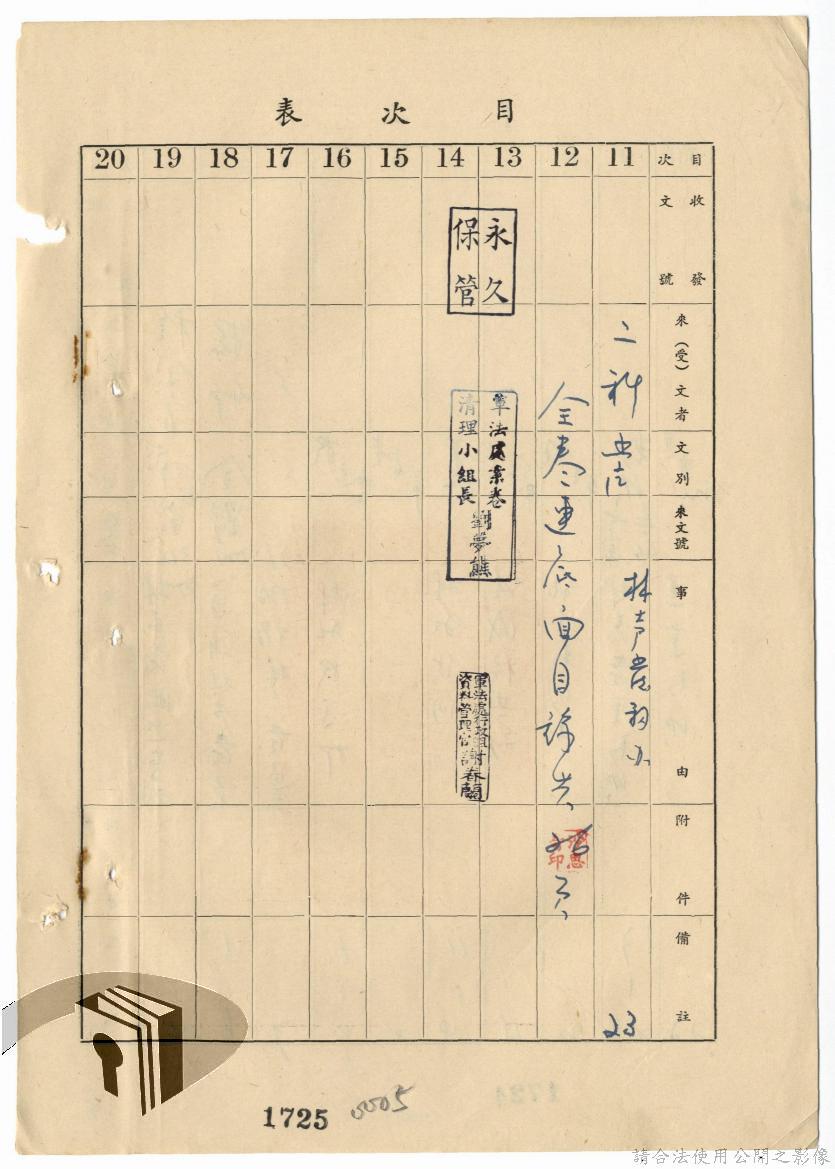 目次表
目次 11 12 13 14 15 16 17 18 19 20
收發文號
來(受)文者
文別
來文號
事由
附件
備註
二科
林
23
全卷連底面目錄共
26
頁
永久
保管
軍法處案卷
清理小組長 劉夢熊
軍法處行政組附
資料管理官謝春蘭
印
1725
0005
1724
請合法使用公開之影像